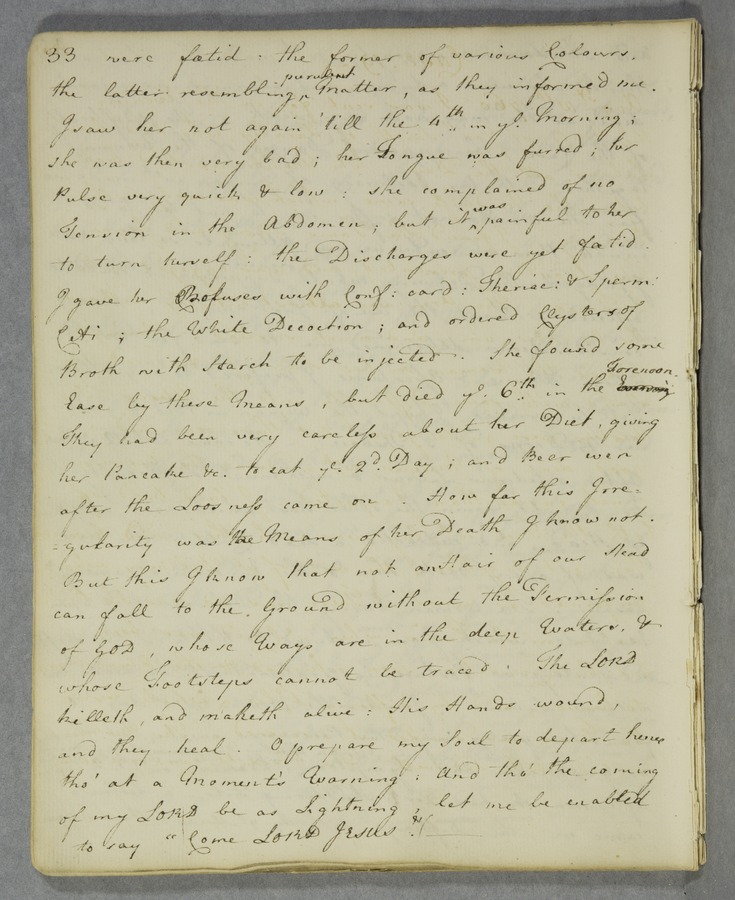 33 were fœtid : the former of various Colours,
the latter resembling ^purulent Matter, as they informed me.
I saw her not again 'till the 4th in ye. Morning ;
she was then very bad ; her Tongue was furred ; her
Pulse very quick & low : she complained of no
Tension in the Abdomen ; but it ^was painful to her
to turn herself : the Discharges were yet fœtid .
I gave her Bofuses with Conf: card: Theriac: & Sperm:
Ceti ; the White Decoction ; and ordered Clysters of
Broth with Starch to be injected . She found some
Ease by these Means , but died ye. 6th in the Forenoon.
They had been very careless about her Diet , giving
her Pancake &c. to eat ye. 2d. Day ; and Beer even
after the Loosness came on . How far this Irre=
=gularity was the Means of her Death I know not .
But this I know that not an Hair of our Head
can fall to the Ground without the Permission
of GOD , whose Ways are in the deep Waters, &
whose Footsteps cannot be traced . The LORD
killeth, and maketh alive : His Hands wound,
and they heal . O prepare my Soul to depart hence
tho' at a Moment's Warning : And tho' the coming
of my LORD be as Lightning , let me be enabled
to say " Come LORD JESUS !"